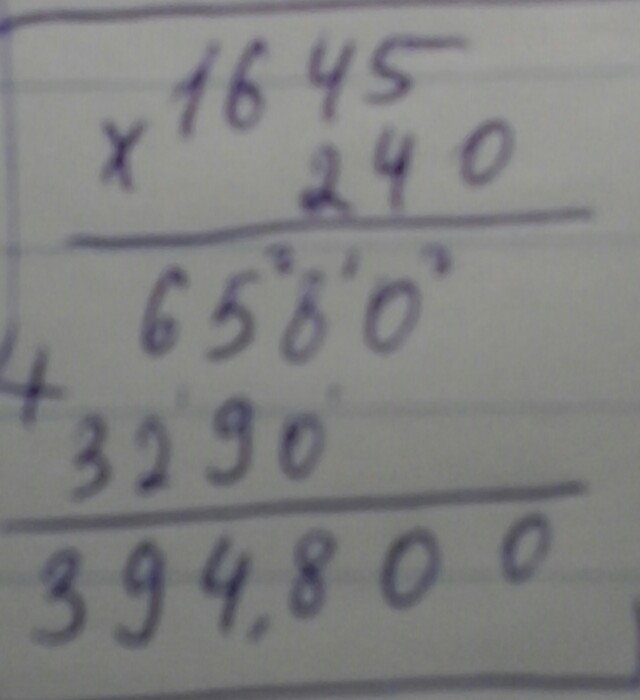 1645
x 240
6580
+ 3290
394,800